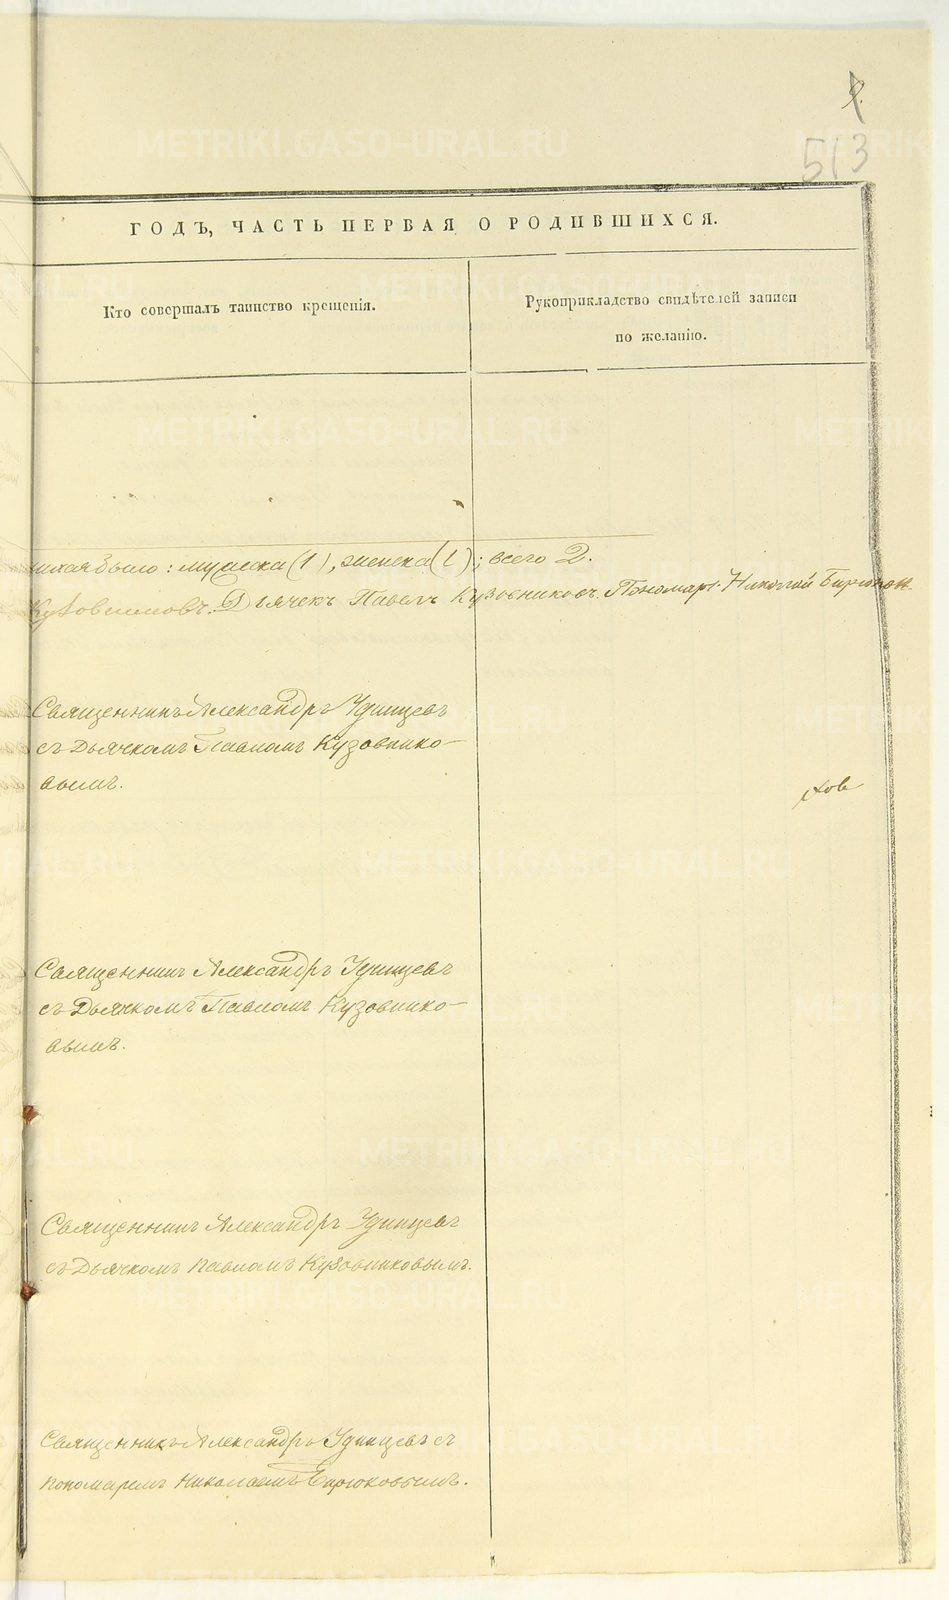 513
ГОДЪ, ЧАСТЬ ПЕРВАЯ О РОДИВШИХСЯ.
Кто совершалъ таинство крещенія.
Рукоприкладство свидѣтелей записи
по желанію.
было: мужеска (1), женска (1); всего 2.
Дьячекъ Павелъ Кузовниковъ. Пономарь Николай Бирюков
Священникъ Александръ Удинцевъ
съ Дьячкомъ Павломъ Кузовнико-
вымъ.
Священникъ Александръ Удинцевъ
съ Дьячкомъ Павломъ Кузовнико-
вымъ.
Священникъ Александръ Удинцевъ
съ Дьячкомъ Павломъ Кузовниковымъ.
Священникъ Александръ Удинцевъ съ
пономаремъ Николаемъ Бирюковымъ.
METRIKI.GASO-URAL.RU